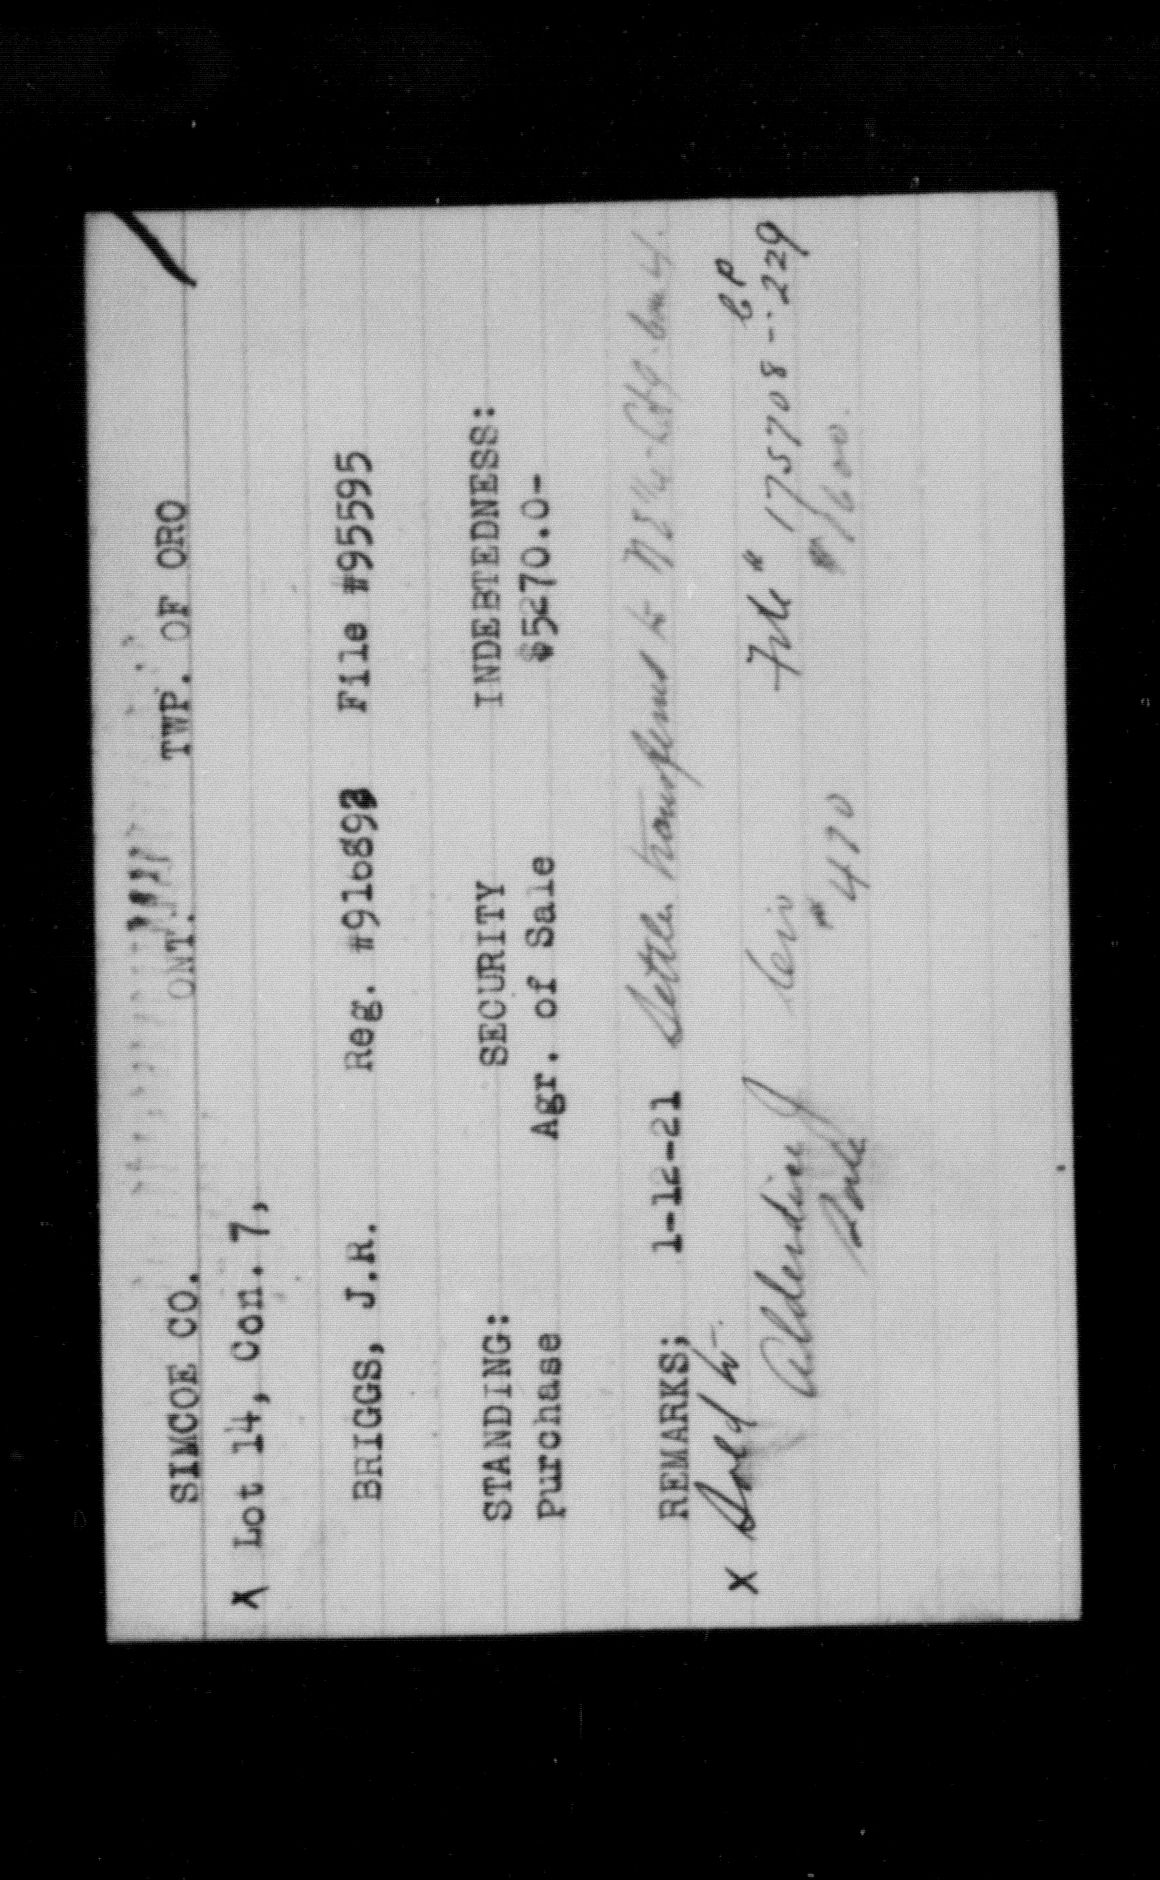 SIMCOE CO. ONT. TWP. OF ORO
X Lot 14, Con. 7,
BRIGGS, J.R. Reg. #916893 File #95595
STANDING: SECURITY INDEBTEDNESS:
Purchase Agr. of Sale $5270.0-
REMARKS; 1-12-21 Settler transferred to NE¼
X Sold to-. CP
Civ File " 175708 -- 229
Sale #470 #1600.